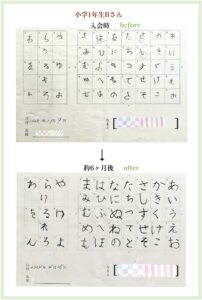 小学1年生Bさん
入会時 before
あいうえお
かきくけこ
さしすせそ
たちつてと
なにぬねの
はひふへほ
まみむめも
やゆよ
らりるれろ
わをん
約6ヶ月後 after
あいうえお
かきくけこ
さしすせそ
たちつてと
なにぬねの
はひふへほ
まみむめも
やゆよ
らりるれろ
わをん